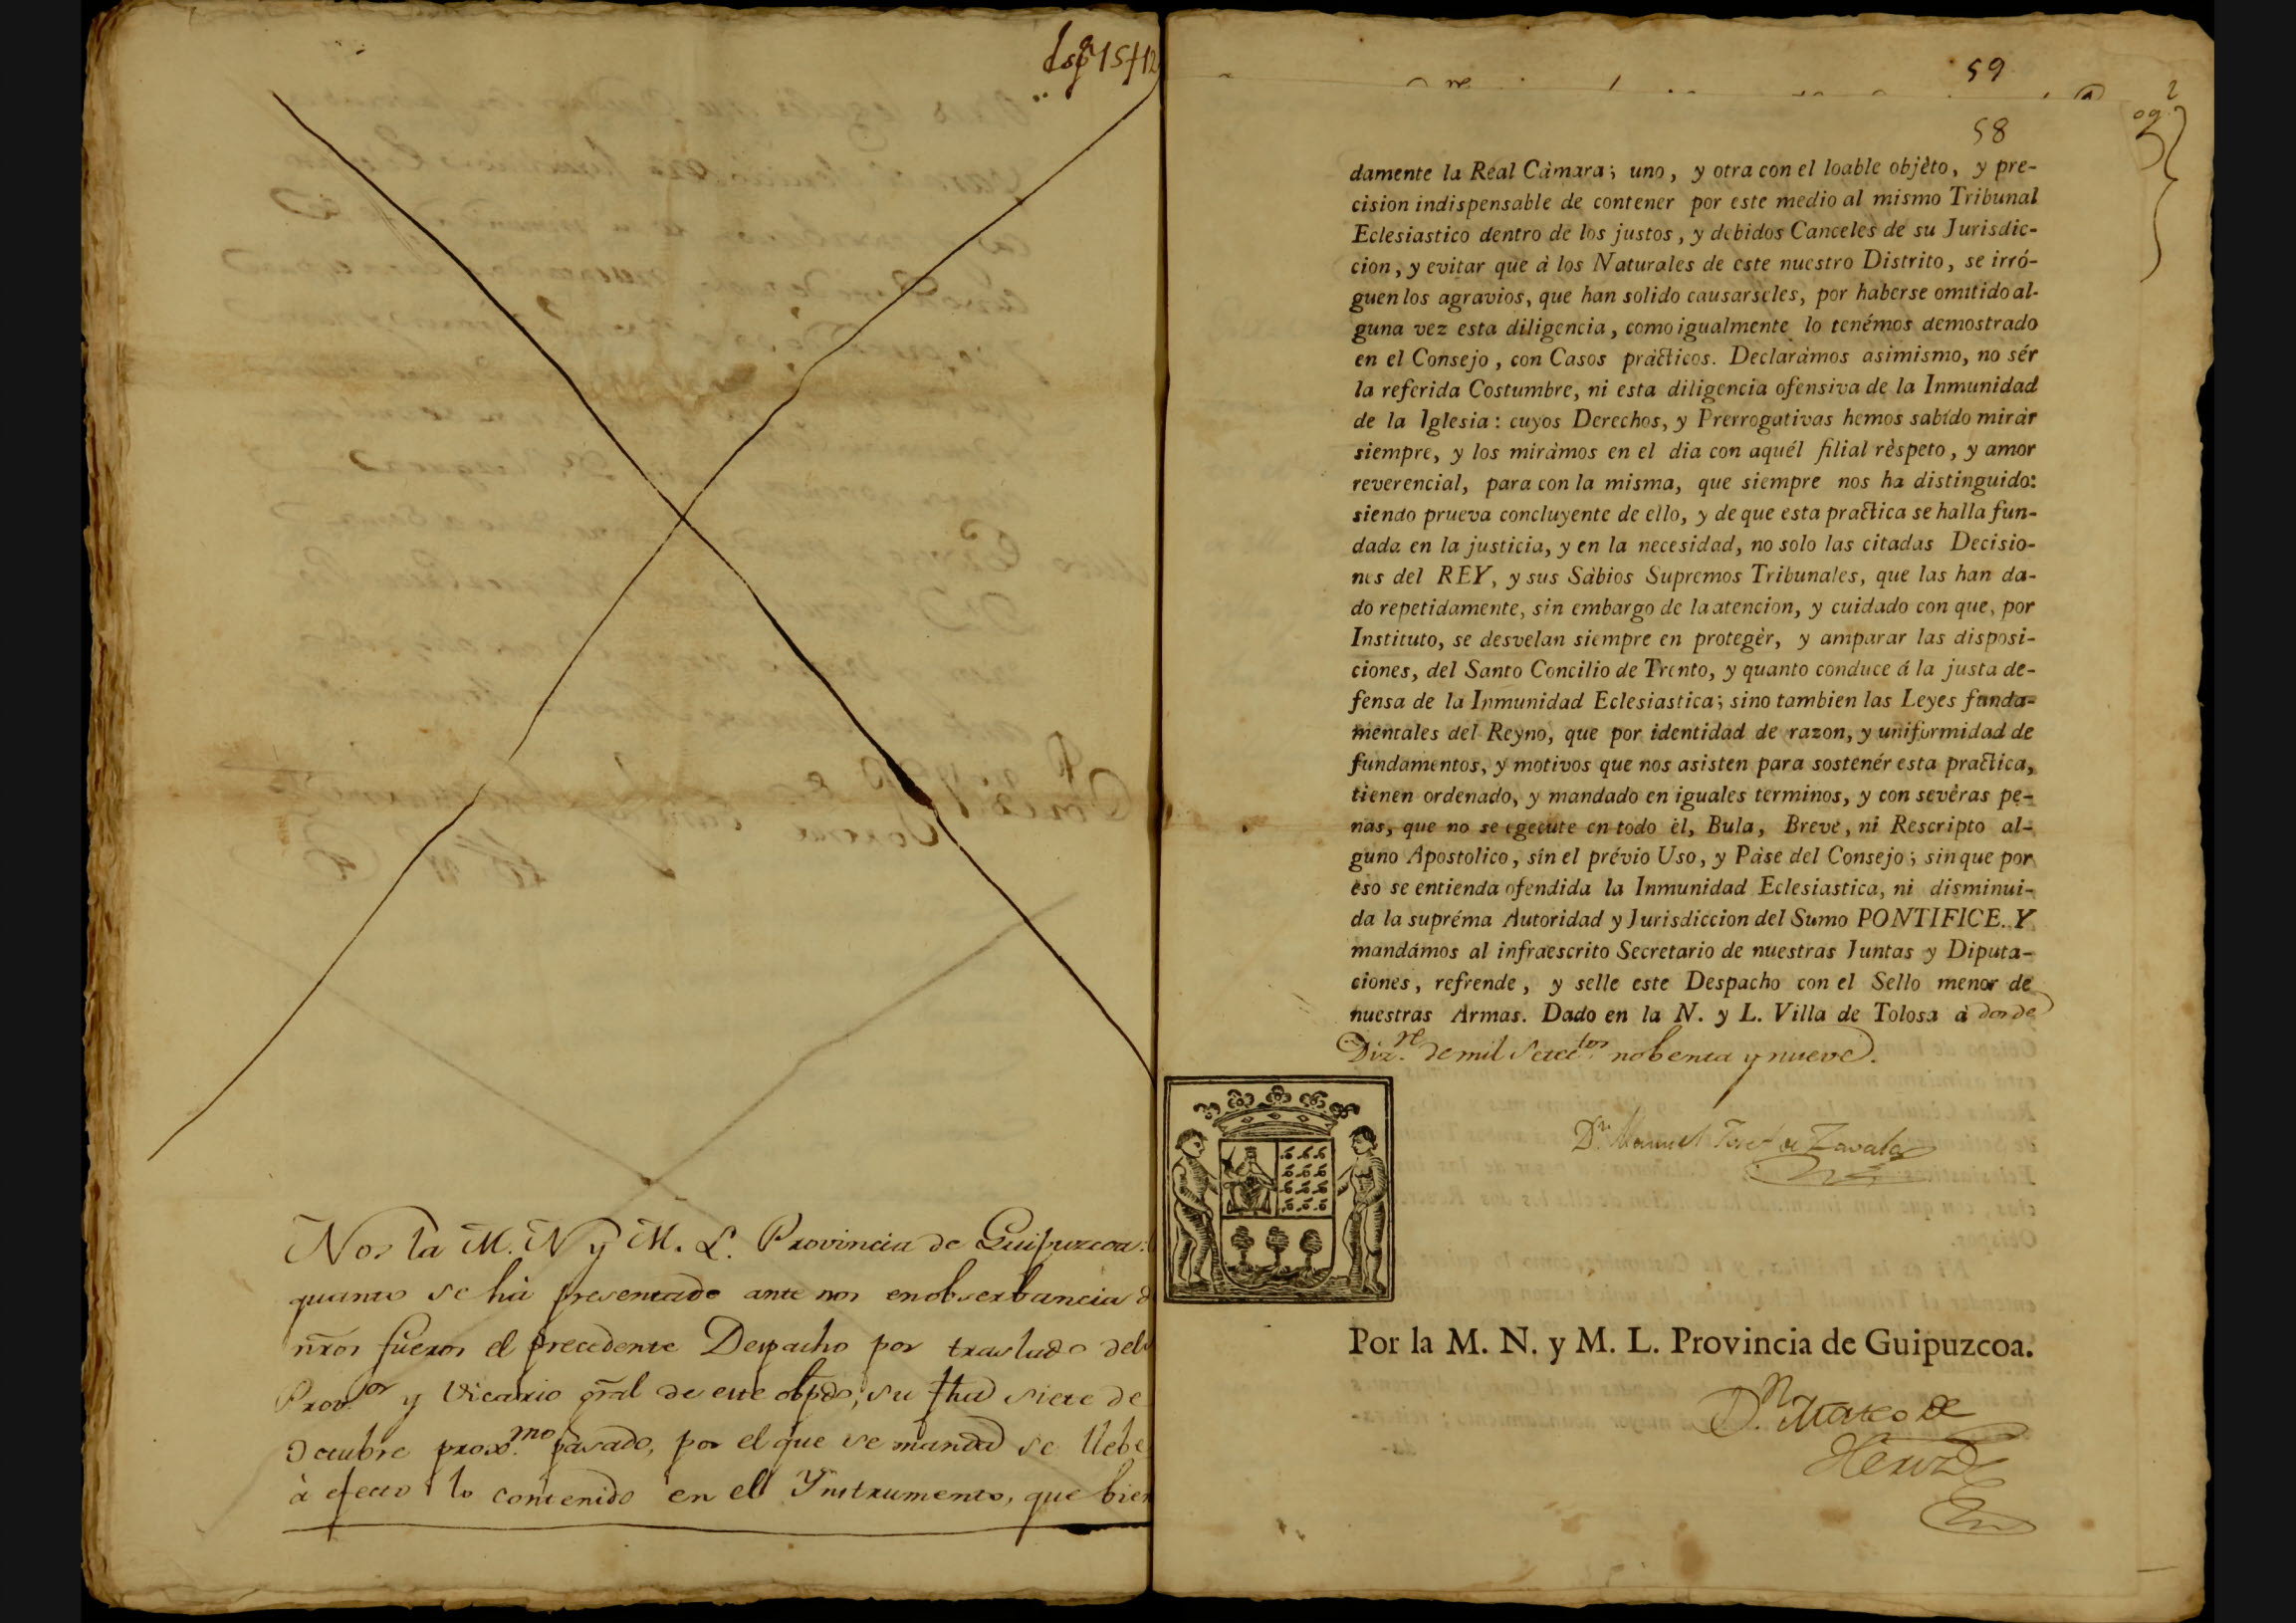 Nos la M. N y M. L. Provincia de Guipuzcoa:
quanto se ha presentado ante nos en obserbancia d
nr̃os fueros el precedente Despacho por traslado del
Prov.or y Vicario gr̃al de este obpdo, su fha siete de
Octubre prox.mo pasado, por el que se manda se llebe
à efecto lo contenido en el Ynstrumento, que bien
59
58
damente la Real Càmara; uno, y otra con el loable objèto, y pre-
cision indispensable de contener por este medio al mismo Tribunal
Eclesiastico dentro de los justos, y debidos Canceles de su Jurisdic-
cion, y evitar que à los Naturales de este nuestro Distrito, se irró-
guen los agravios, que han solido causarseles, por haberse omitido al-
guna vez esta diligencia, como igualmente lo tenémos demostrado
en el Consejo, con Casos pràcticos. Declaràmos asimismo, no sér
la referida Costumbre, ni esta diligencia ofensiva de la Inmunidad
de la Iglesia: cuyos Derechos, y Prerrogativas hemos sabído miràr
siempre, y los miràmos en el dia con aquél filial rèspeto, y amor
reverencial, para con la misma, que siempre nos ha distinguido:
siendo prueva concluyente de ello, y de que esta practica se halla fun-
dada en la justicia, y en la necesidad, no solo las citadas Decisio-
nes del REY, y sus Sàbios Supremos Tribunales, que las han da-
do repetidamente, sin embargo de la atencion, y cuidado con que, por
Instituto, se desvelan siempre en protegèr, y amparar las disposi-
ciones, del Santo Concilio de Trento, y quanto conduce á la justa de-
fensa de la Inmunidad Eclesiastica; sino tambien las Leyes funda-
mentales del Reyno, que por identidad de razon, y uniformidad de
fundamentos, y motivos que nos asisten para sostenér esta practica,
tienen ordenado, y mandado en iguales terminos, y con sevèras pe-
nas, que no se egecute en todo èl, Bula, Breve, ni Rescripto al-
guno Apostolico, sín el prévio Uso, y Pàse del Consejo; sin que por
eso se entienda ofendida la Inmunidad Eclesiastica, ni disminui-
da la supréma Autoridad y Jurisdiccion del Sumo PONTIFICE. Y
mandámos al infraescrito Secretario de nuestras Juntas y Diputa-
ciones, refrende, y selle este Despacho con el Sello menor de
nuestras Armas. Dado en la N. y L. Villa de Tolosa à dos de
Diz.re de mil setec.tos nobenta y nueve.
D.n Manuel Josef de Zavala
Por la M. N. y M. L. Provincia de Guipuzcoa.
D.n Mateo de
Heriz